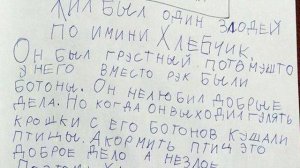 Жил был один злодей
по имини Хлебчик.
Он был грустный. потомушто
у него вместо рук были
ботоны. Он нелюбил добрые
дела. Но когда он выходил гулять
крошки с его ботонов кушали
птицы. А кормить птиц это
доброе дело а незлое.